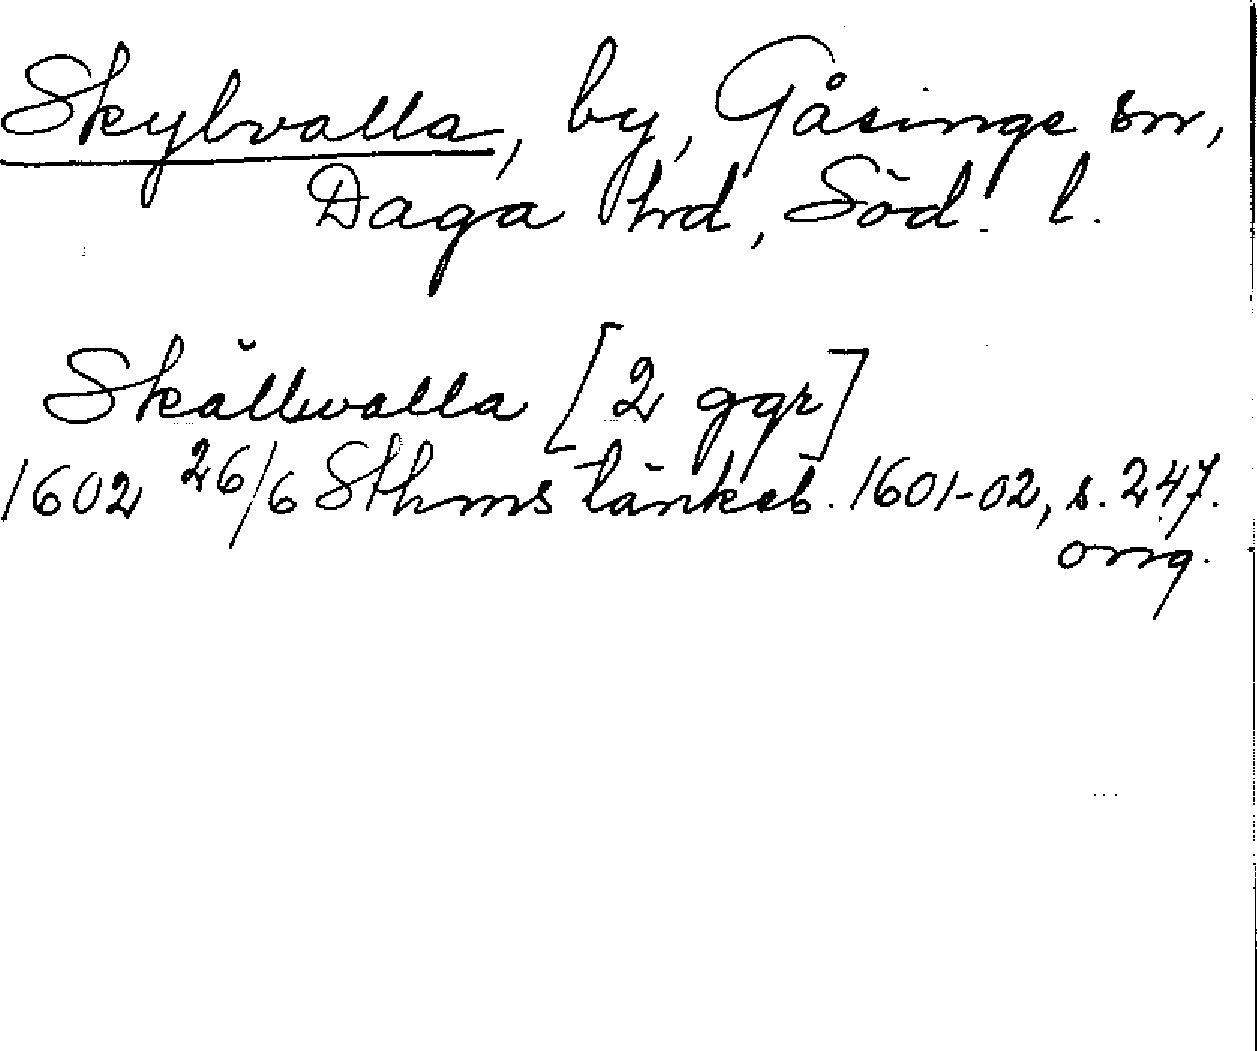 Skylvalla, by, Gåsinge sn,
Daga hd, Söd. l.
Skållwalla [2 ggr]
1602 26/6 Sthms tänkeb. 1601-02, s. 247.
orig.